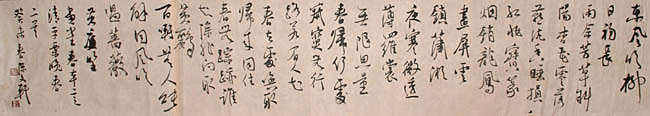 東風吹柳
日初長
雨餘芳草斜
陽杏花零落
燕泥香睡損
紅妝寶篆
煙銷龍鳳
畫屏雲
鎖瀟湘
夜寒微透
薄羅裳
無限思量
春歸何處
寂寞無行
路若有人知
春去處喚取
歸來同住
春無踪跡誰
知除非問取
黃鸝
百囀無人能
解因風吹
過薔薇
黃庭堅
畫堂春
清平樂晚春
二首
癸未春